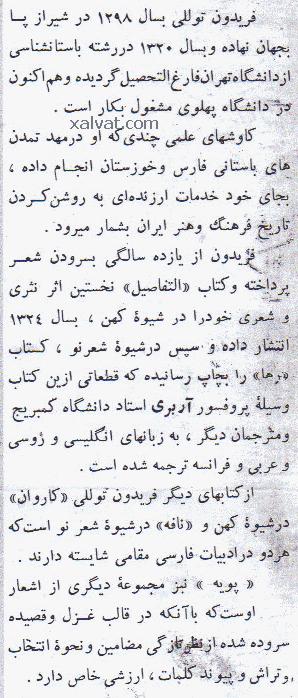 فریدون توللی بسال ۱۲۹۸ در شیراز پا
بجهان نهاده وبسال ۱۳۲۰ دررشته باستانشناسی
ازدانشگاه‌تهران‌فارغ‌التحصیل‌گردیده وهم‌اکنون
در دانشگاه پهلوی مشغول بکار است .
xalvat.com
کاوشهای علمی چندی‌که او درمهد تمدن
های باستانی فارس وخوزستان انجـام داده ،
بجای خود خدمات ارزنده‌ای به روشن‌کـردن
تاریخ فرهنگ وهنر ایران بشمار میرود .
فریدون از یازده سالگی بسرودن شعـر
پرداخته وکتاب «التفاصیل» نخستین اثر نثری
و شعری خودرا در شیوهٔ کهن ، بسال ۱۳۲۴
انتشار داده و سپس درشیوهٔ شعرنو ، کتساب
«رها» را بچاپ رسانیده که قطعاتی ازین کتاب
وسیلهٔ پروفسور آربری استاد دانشگاه کمبریج
ومترجمان دیگر ، به زبانهای انگلیسی و رؤسی
و عربی و فرانسه ترجمه شده است .
ازکتابهای دیگر فریدون توللی «کاروان»
درشیوهٔ کهن و «نافه» درشیوهٔ شعر نو است‌که
هردو درادبیات فارسی مقامی شایسته دارند .
« پویه » نیز مجموعهٔ دیگری از اشعار
اوست‌که باآنکه در قالب غـزل وقصیده
سروده شده ازنظرتازگی مضامین ونحوهٔ انتخاب
وتراش و پیوند کلمات ، ارزشی خاص دارد .